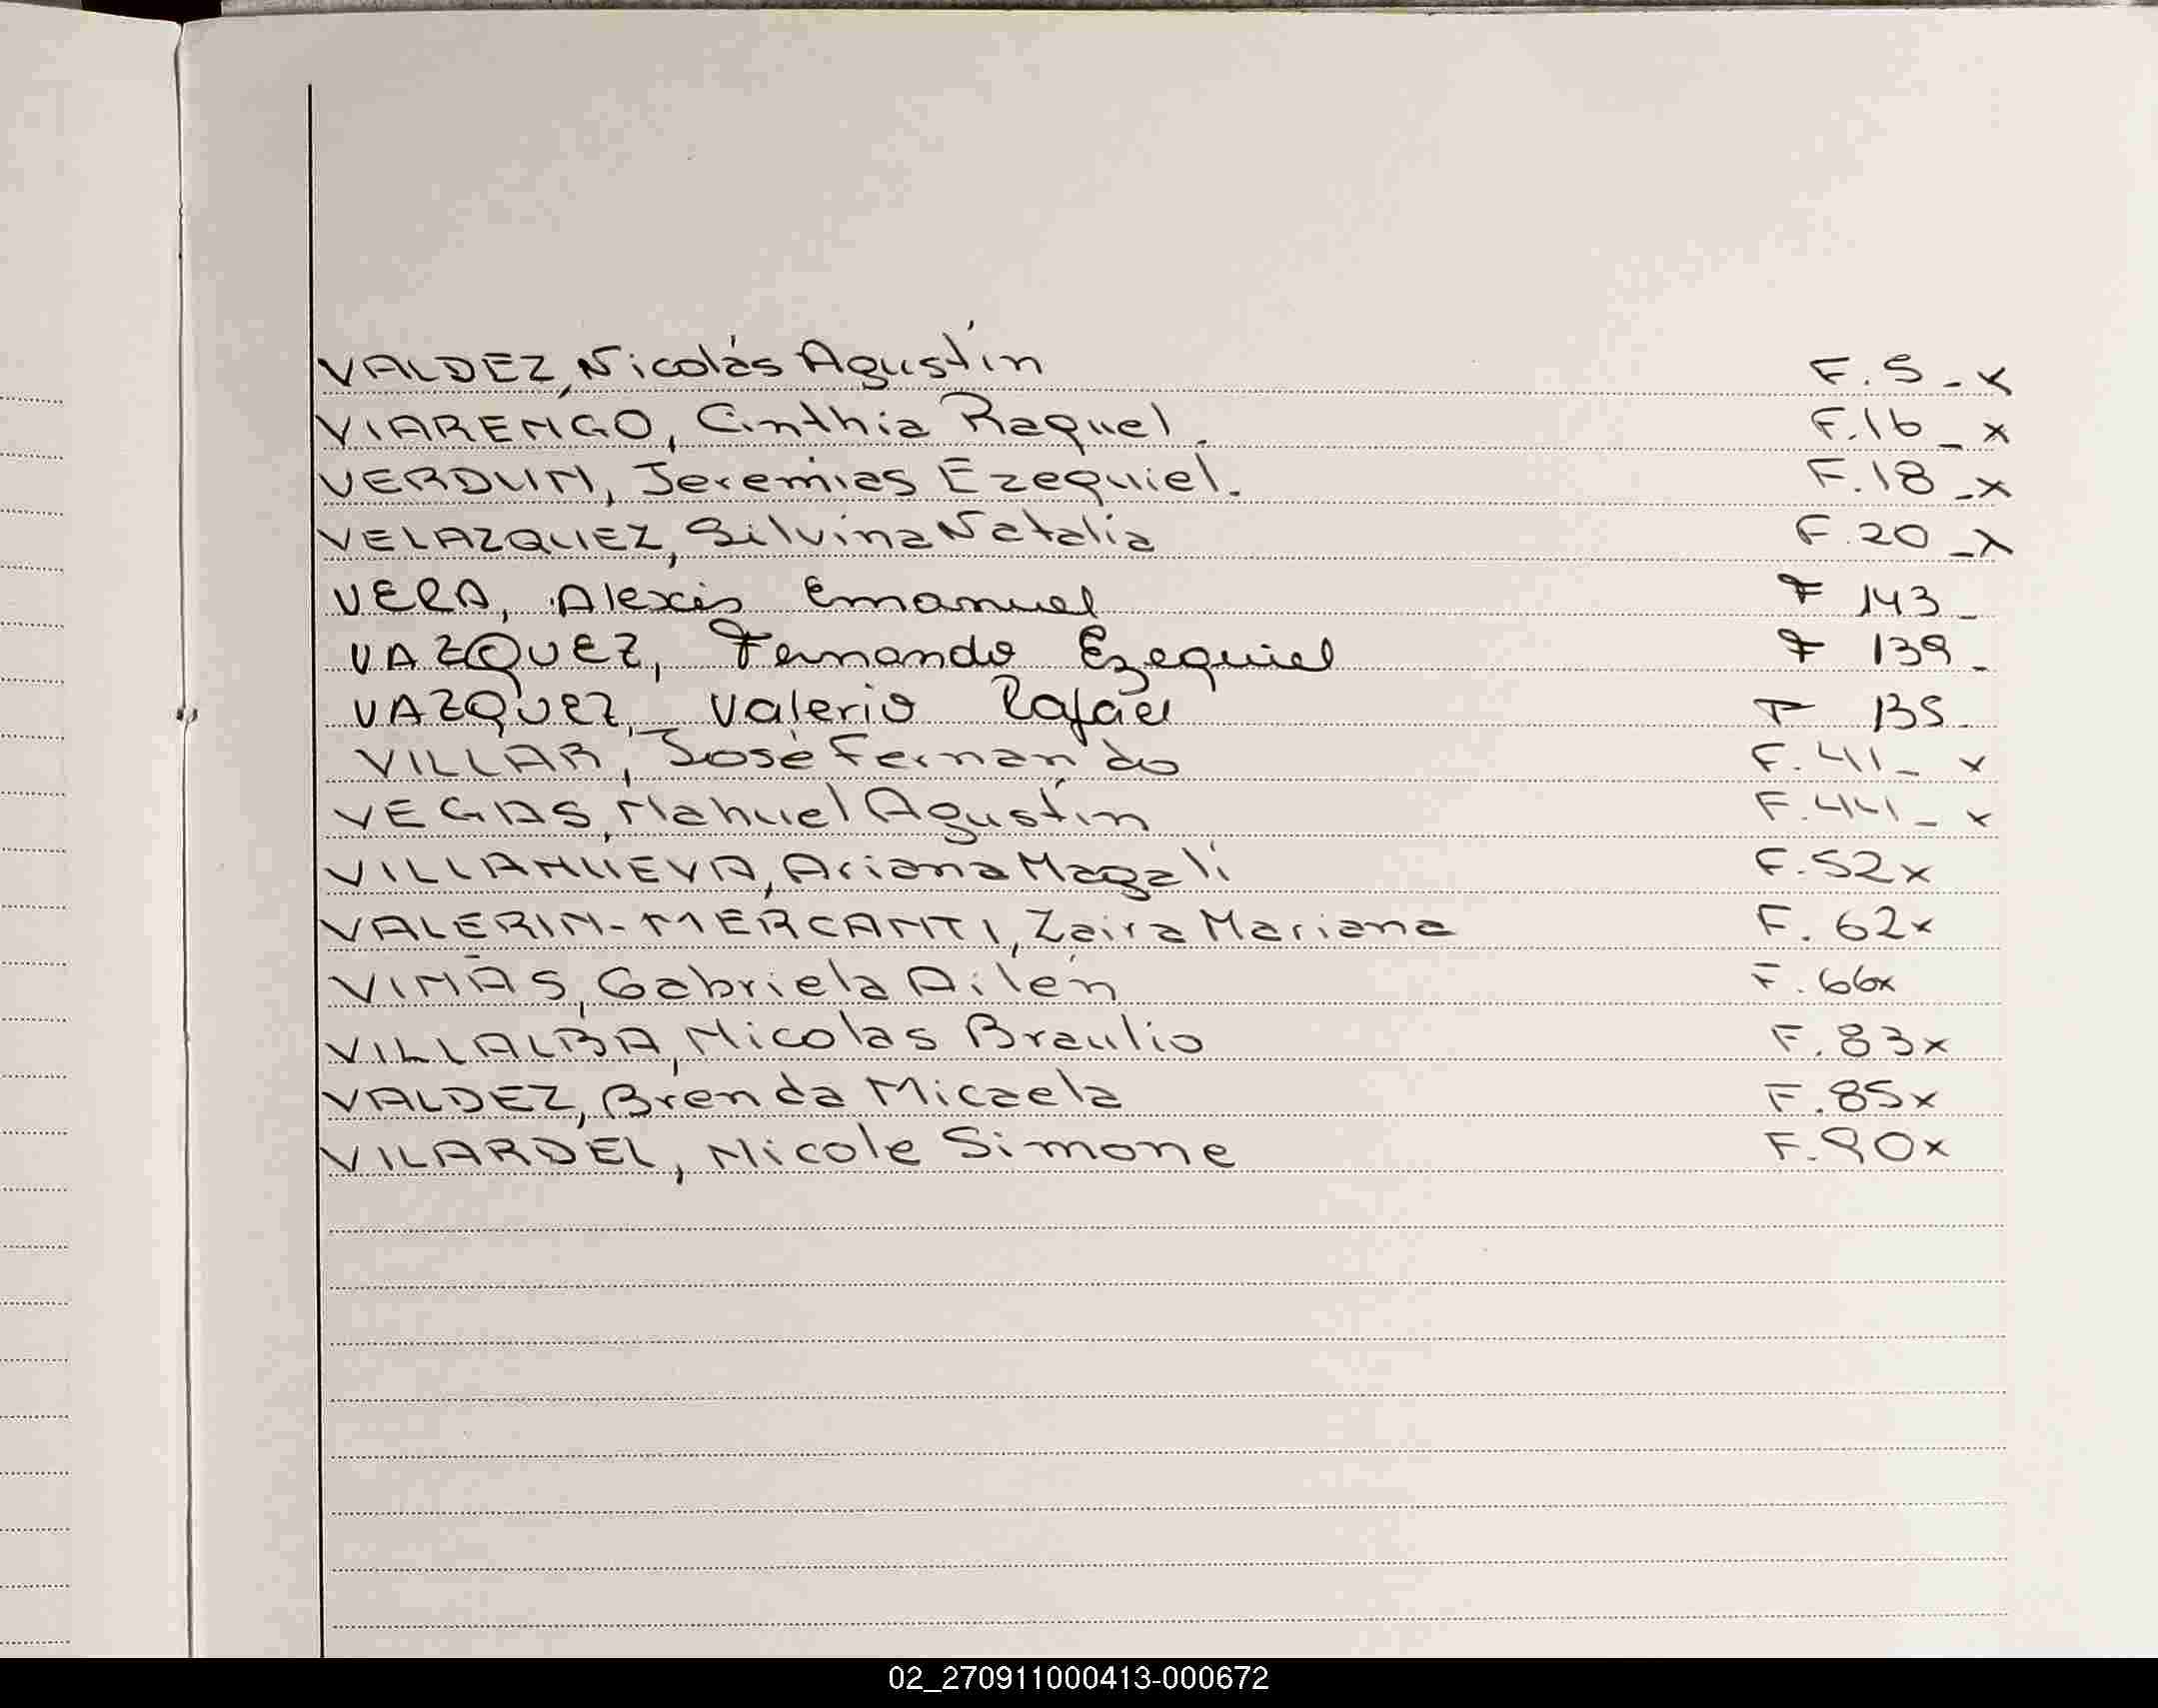 VALDEZ, Nicolás Agustín F. 5 - x
VIARENGO, Cinthia Raquel. F. 16 - x
VERDUN, Jeremías Ezequiel. F. 18 - x
VELAZQUEZ, Silvina Natalia F. 20 - x
VERA, Alexis Emanuel F 143 -
VAZQUEZ, Fernando Ezequiel F 139 -
VAZQUEZ, Valerio Rafael F 135 -
VILLAR, José Fernando F. 41 - x
VEGAS, Nahuel Agustín F. 441 - x
VILLANUEVA, Ariana Magalí F. 52 x
VALERIN-MERCANTI, Zaira Mariana F. 62 x
VIÑAS, Gabriela Ailén F. 66 x
VILLALBA, Nicolas Braulio F. 83 x
VALDEZ, Brenda Micaela F. 85 x
VILARDEL, Nicole Simone F. 90 x
02_270911000413-000672